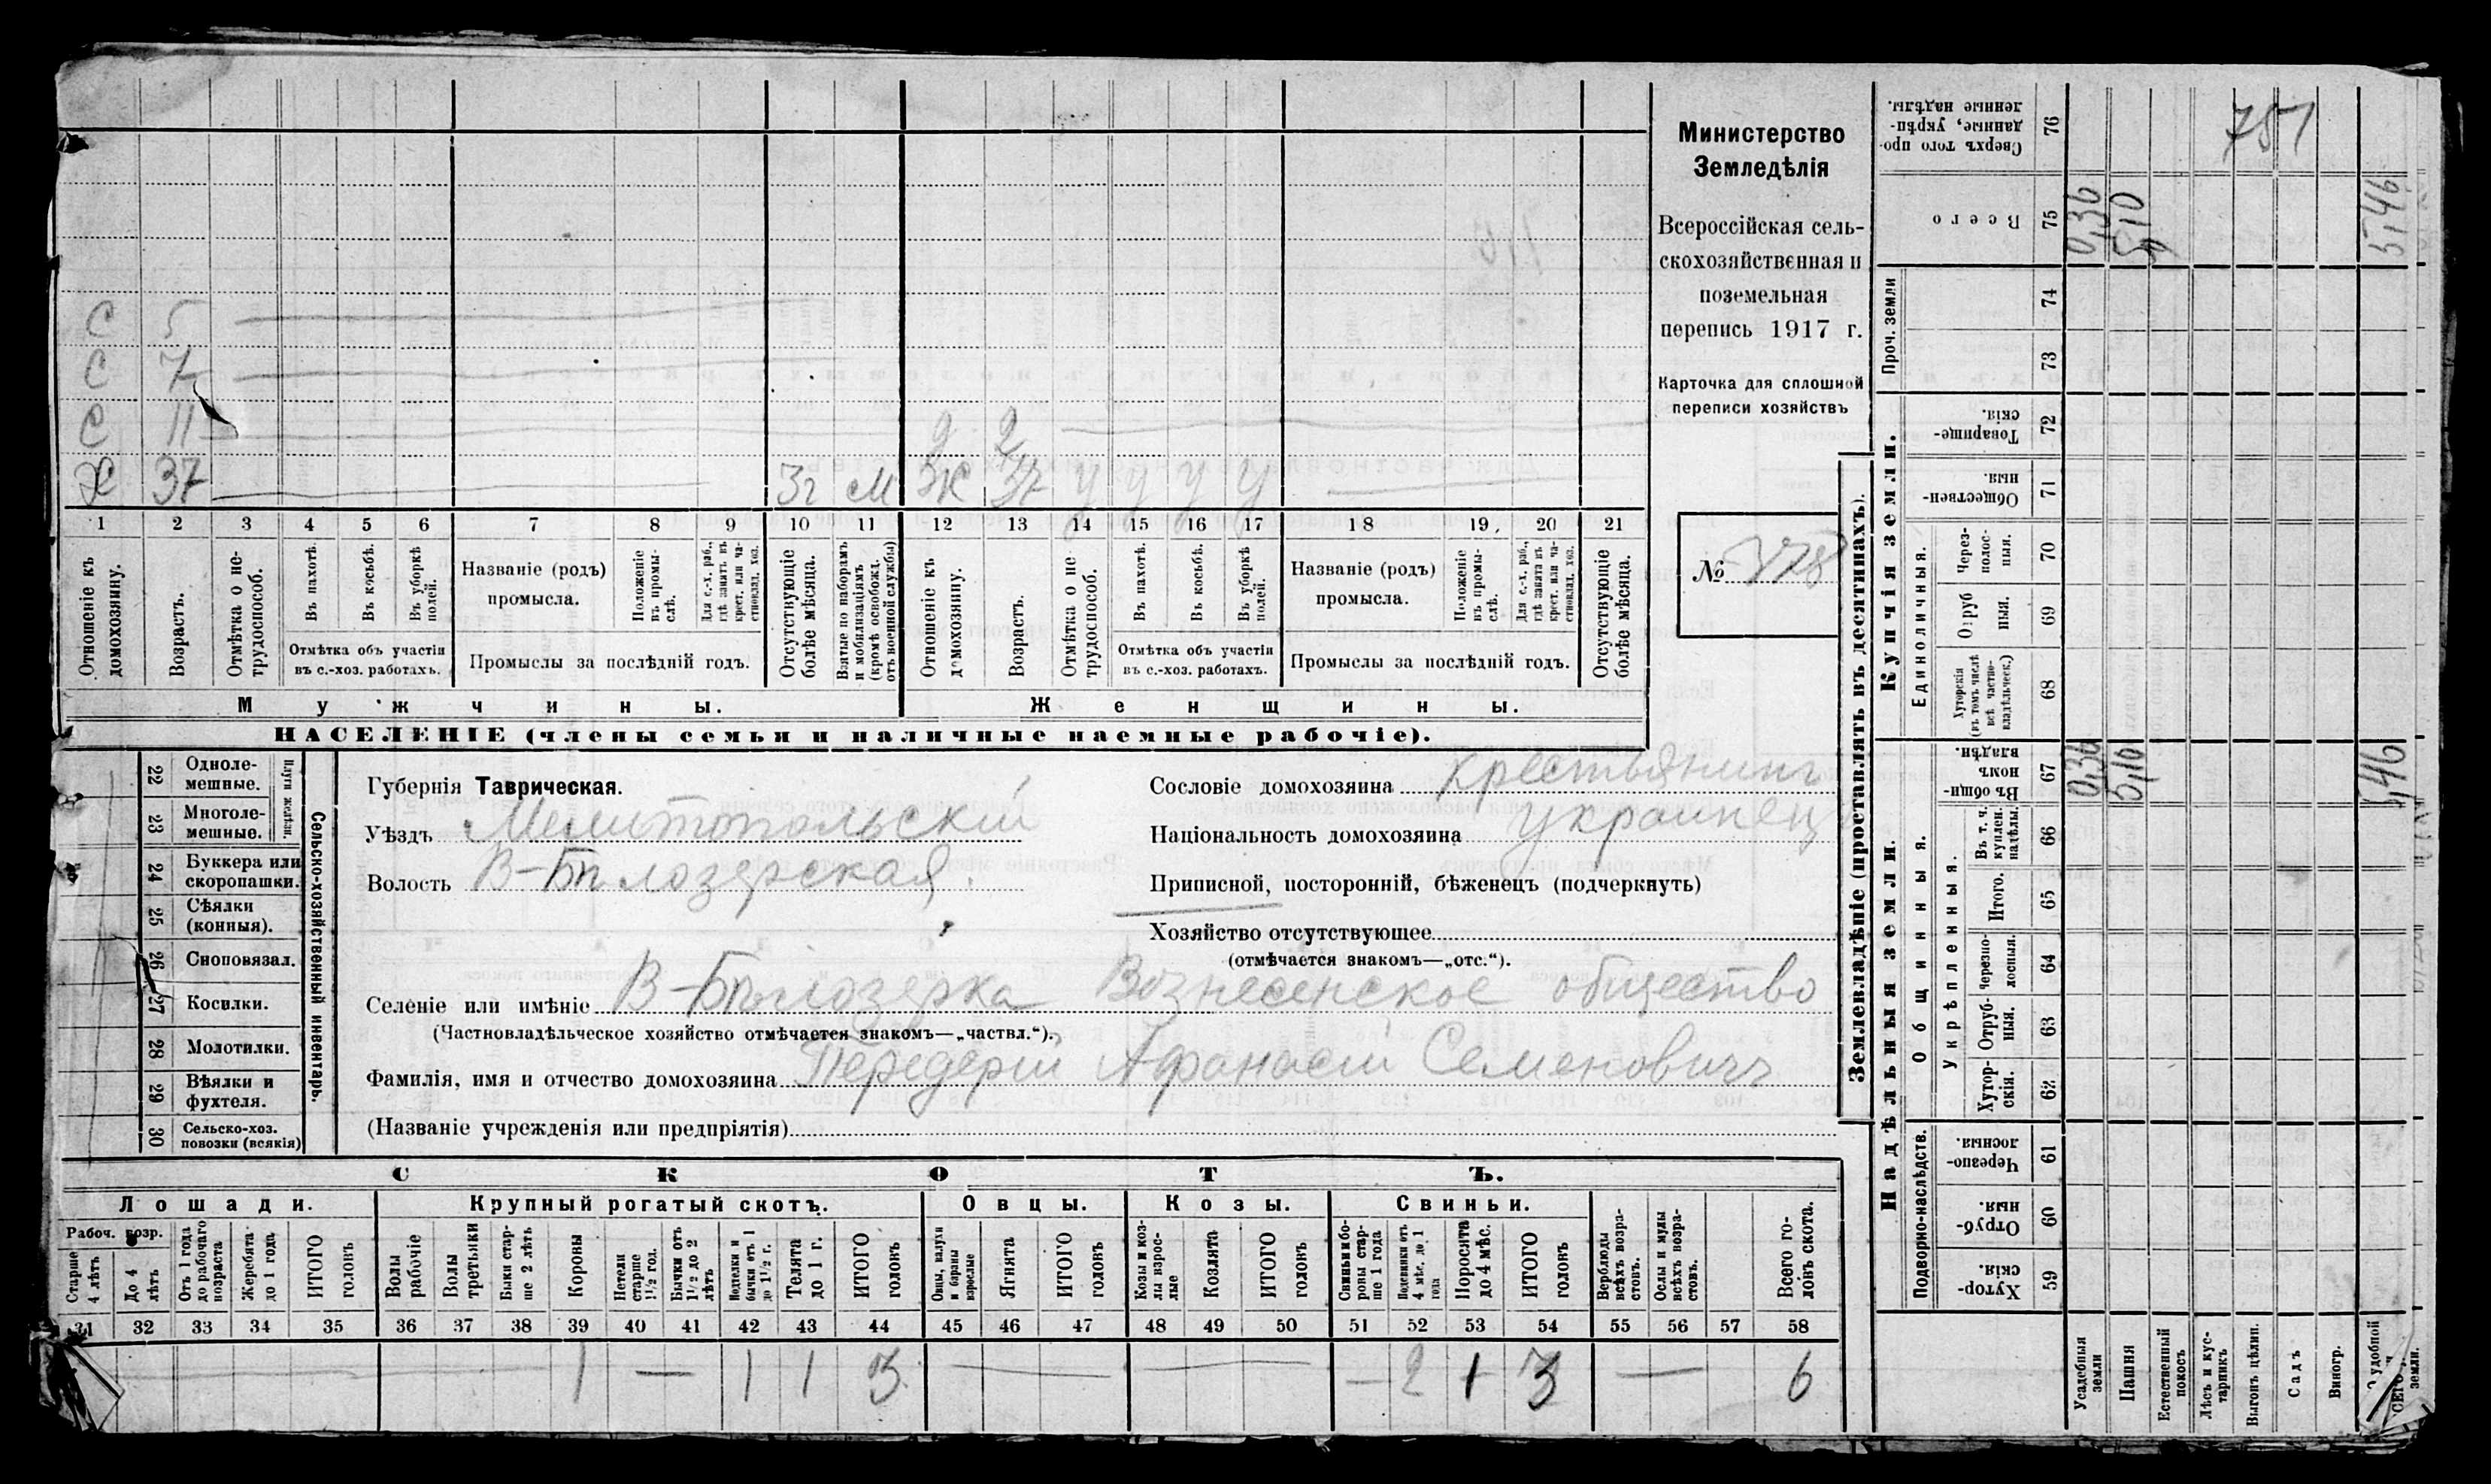 С 5
С 7
С 11
Х 37 3г м
д 2
Жк 37 у у у у
1 2 3 4 5 6 7 8 9 10 11 12 13 14 15 16 17 18 19 20 21
Отношеніе къ домохозяину.
Возрастъ.
Отмѣтка о не-трудоспособ.
Въ пахотѣ.
Въ косьбѣ.
Въ уборкѣ полей.
Отмѣтка объ участіи
въ с.-хоз. работахъ.
Названіе (родъ)
промысла.
Положеніе въ промы-слѣ.
Для с.-х. раб., гдѣ занятъ въ крест. или ча-стновлад. хоз.
Промыслы за послѣдній годъ.
Отсутствующіе болѣе мѣсяца.
Взятые по наборамъ и мобилизаціямъ (кромѣ освобожд. отъ военной службы)
Отношеніе къ домохозяину.
Возрастъ.
Отмѣтка о не трудоспособ.
Въ пахотѣ.
Въ косьбѣ.
Въ уборкѣ полей.
Отмѣтка объ участіи
въ с.-хоз. работахъ.
Названіе (родъ)
промысла.
Положеніе въ промы-слѣ.
Для с.-х. раб., гдѣ занята въ крест. или ча-стновлад. хоз.
Промыслы за послѣдній годъ.
Отсутствующіе болѣе мѣсяца.
Мужчины. Женщины.
НАСЕЛЕНІЕ (члены семьи и наличные наемные рабочіе).
Министерство
Земледѣлія
Всероссійская сель-
скохозяйственная и
поземельная
перепись 1917 г.
Карточка для сплошной
переписи хозяйствъ
№ 378
Сельско-хозяйственный инвентарь.
Плуги желѣзн.
22 Однолемешные.
23 Многолемешные.
24 Буккера или скоропашки.
25 Сѣялки (конныя).
26 Сноповязал.
27 Косилки.
28 Молотилки.
29 Вѣялки и фухтеля.
30 Сельско-хоз. повозки (всякія)
Губернія Таврическая.
Уѣздъ Мелитопольскій
Волость В-Бѣлозерская.
Сословіе домохозяина крестьянинъ
Національность домохозяина украинец
Приписной, посторонній, бѣженецъ (подчеркнуть)
Хозяйство отсутствующее
(отмѣчается знакомъ—„отс.“).
Селеніе или имѣніе В-Бѣлозерка Вознесенское общество
(Частновладѣльческое хозяйство отмѣчается знакомъ—„частвл.“).
Фамилія, имя и отчество домохозяина Передерій Афанасій Семеновичъ
(Названіе учрежденія или предпріятія)
СКОТЪ.
Лошади. Крупный рогатый скотъ. Овцы. Козы. Свиньи.
Рабоч. возр.
Старше 4 лѣтъ
До 4 лѣтъ
Отъ 1 года до рабочаго возраста
Жеребята до 1 года
ИТОГО головъ
Волы рабочіе
Волы третьяки
Быки стар-ше 2 лѣтъ
Коровы
Нетели старше 1½ год.
Бычки отъ 1½ до 2 лѣтъ
Подтелки и бычки отъ 1 до 1½ г.
Телята до 1 г.
ИТОГО головъ
Овцы, валухи и бараны взрослые
Ягнята
ИТОГО головъ
Козы и коз-лы взрос-лые
Козлята
ИТОГО головъ
Свиньи и бо-ровы стар-ше 1 года
Подсвинки отъ 4 мѣс. до 1 года
Поросята до 4 мѣс.
ИТОГО головъ
Верблюды всѣхъ возра-стовъ.
Ослы и мулы всѣхъ возра-стовъ.
Всего го-ловъ скота.
31 32 33 34 35 36 37 38 39 40 41 42 43 44 45 46 47 48 49 50 51 52 53 54 55 56 57 58
1 — 1 1 3 — — — 2 1 3 — 6
Землевладѣніе (проставлять въ десятинахъ).
Надѣльныя земли. Купчія земли. Проч. земли
Подворно-наслѣдств.
59 Хутор-скія.
60 Отруб-ныя.
61 Черезпо-лосныя.
Общинныя.
Укрѣпленныя.
62 Хутор-скія.
63 Отруб-ныя.
64 Черезпо-лосныя.
65 Итого.
66 Въ т. ч. куплен. надѣлы.
67 Въ общи-номъ владѣн.
Единоличныя.
68 Хуторскія (въ томъ числѣ всѣ частно-владѣльческ.)
69 Отруб ныя.
70 Через-полос-ныя.
71 Обществен-ныя.
72 Товарище-скія.
73
74
75 Всего
76 Сверхъ того про-данные, укрѣп-ленные надѣлы.
Усадебныя земли
Пашня
Естественный покосъ
Лѣсъ и кус-тарникъ
Выгонъ цѣлин.
Садъ
Виногр.
удобной земли.
0,36 5,10 5,46
0,36 5,10 5,46
751